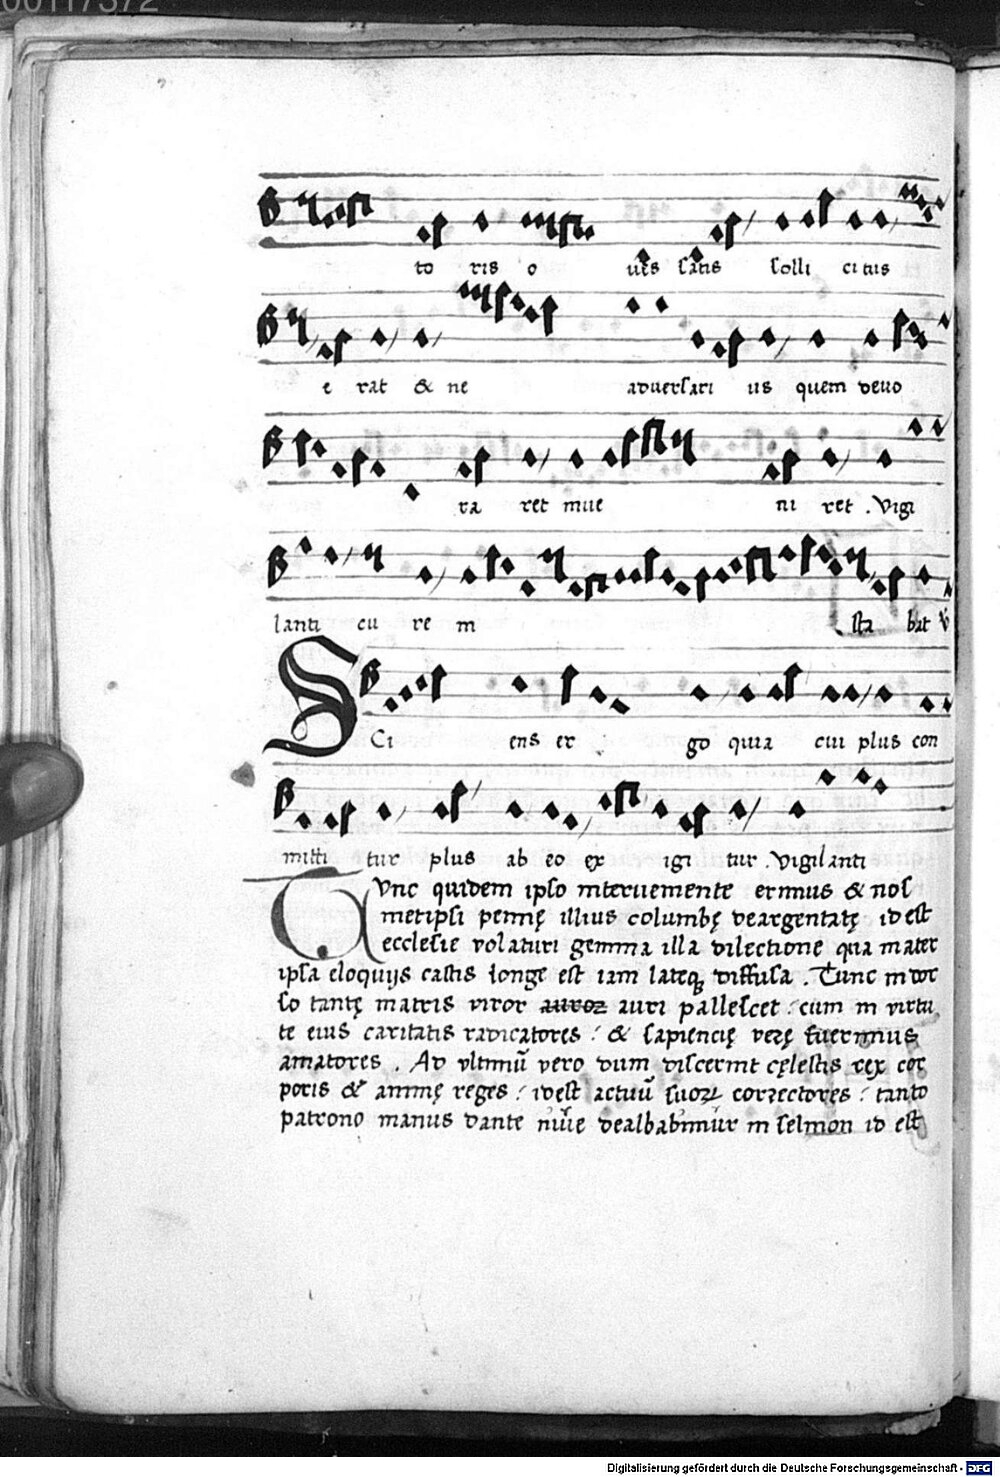 00117372
to ris o ues satis solli citus
e rat & ne aduersari us quem deuo
ra ret inue ni ret . Vigi
lanti cu re m sta bat V
SCi ens er go quia cui plus con
mitti tur plus ab eo ex igi tur . Vigilanti
Tunc quidem ipso interueniente erimus & nos
metipsi pennę illius columbę deargentatę id est
ecclesie volaturi gemma illa dilectione qua mater
ipsa eloquijs castis longe est iam lateq; diffusa . Tunc in dor
so tantę matris viror auroꝝ auri pallescet : cum in virtu
te eius caritatis radicatores : & sapiencię verę fuerimus
amatores . Ad vltimū vero dum discernit cęlestis rex cor
poris & animę reges : id est actuū suoꝝ correctores : tanto
patrono manus dante niuie dealbabimur in selmon id est
Digitalisierung gefördert durch die Deutsche Forschungsgemeinschaft - DFG